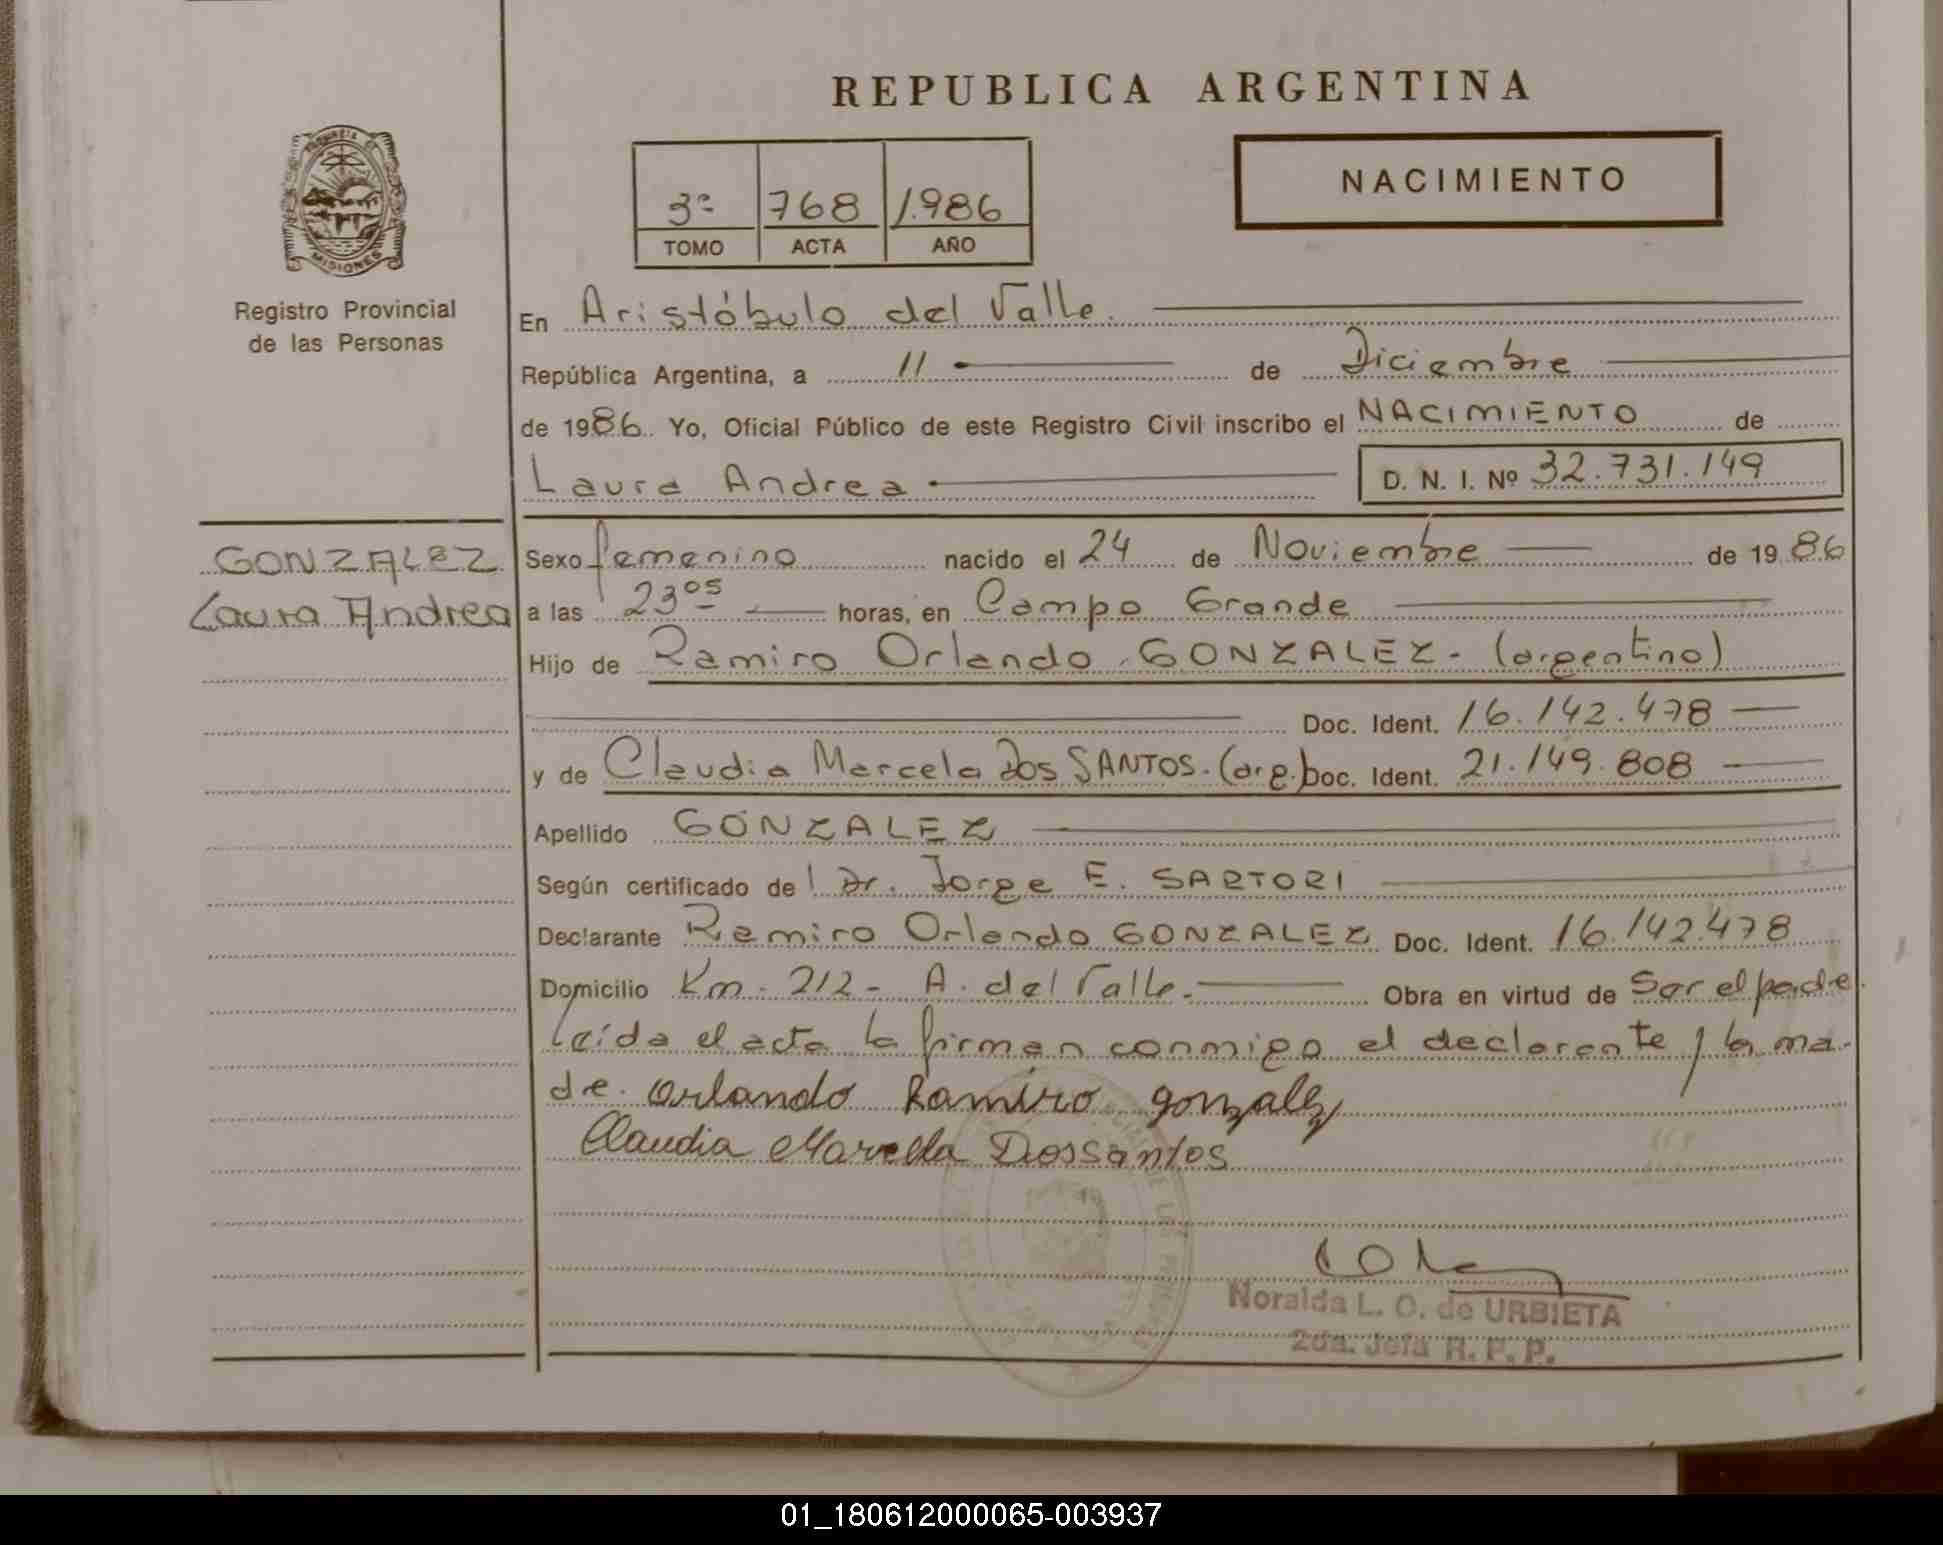 REPUBLICA ARGENTINA
PROVINCIA
MISIONES
Registro Provincial
de las Personas
3º 768 1.986
TOMO ACTA AÑO
NACIMIENTO
En Aristóbulo del Valle.
República Argentina, a 11 de Diciembre
de 1986. Yo, Oficial Público de este Registro Civil inscribo el NACIMIENTO de
Laura Andrea
D. N. I. Nº 32.731.149
GONZALEZ
Laura Andrea
Sexo femenino nacido el 24 de Noviembre de 1986
a las 23 05 horas, en Campo Grande
Hijo de Ramiro Orlando GONZALEZ - (argentino)
Doc. Ident. 16.142.478
y de Claudia Marcela Dos SANTOS. (arg.) Doc. Ident. 21.149.808
Apellido GONZALEZ
Según certificado de Dr. Jorge E. SARTORI
Declarante Ramiro Orlando GONZALEZ Doc. Ident. 16.142.478
Domicilio Km. 212 - A. del Valle. Obra en virtud de Ser el padre.
Leída el acta la firman conmigo el declarante y la ma-
dre. Orlando Ramiro gonzalez
Claudia Marcella Dossantos
Noralda L. O. de URBIETA
2da. Jefa R. P. P.
01_180612000065-003937